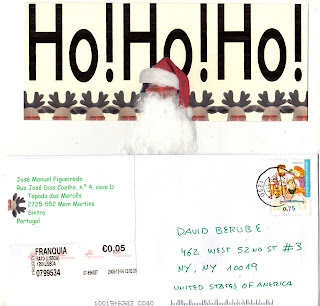 Ho!Ho!Ho!
José Manuel Figueiredo
Rua José Dias Coelho, n.º 4, cave D
Tapada das Mercês
2725-552 Mem Martins
Sintra
Portugal
FRANQUIA
€0,05
1990 LISBOA
0799534
0,75
DAVID BERUBE
462 WEST 52ND ST #3
NY, NY, 10019
UNITED STATES OF AMERICA